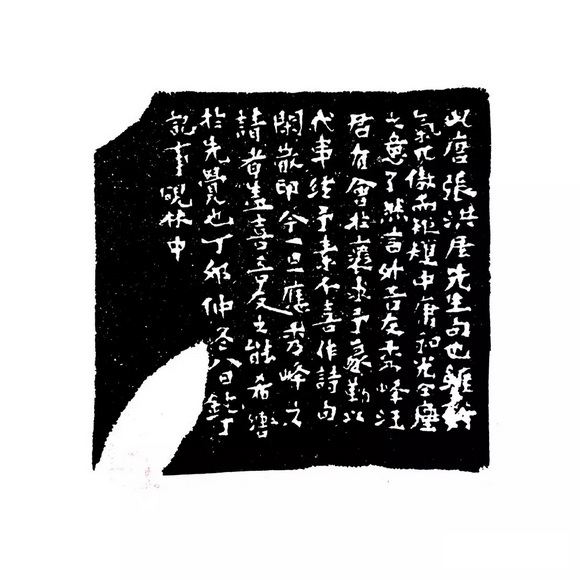 此唐張洪厓先生句也雖辭
氣兀傲而矩矱中庸和光全塵
之意了然言外吾友秀峰汪
君有會於襄求予篆勒以
代事㱕予素不喜作詩白
閑嵗即今一旦應秀峰之
請者盖喜吾友之能希縱
於先覺也丁邜仲冬八日鈍丁
記事硯林中